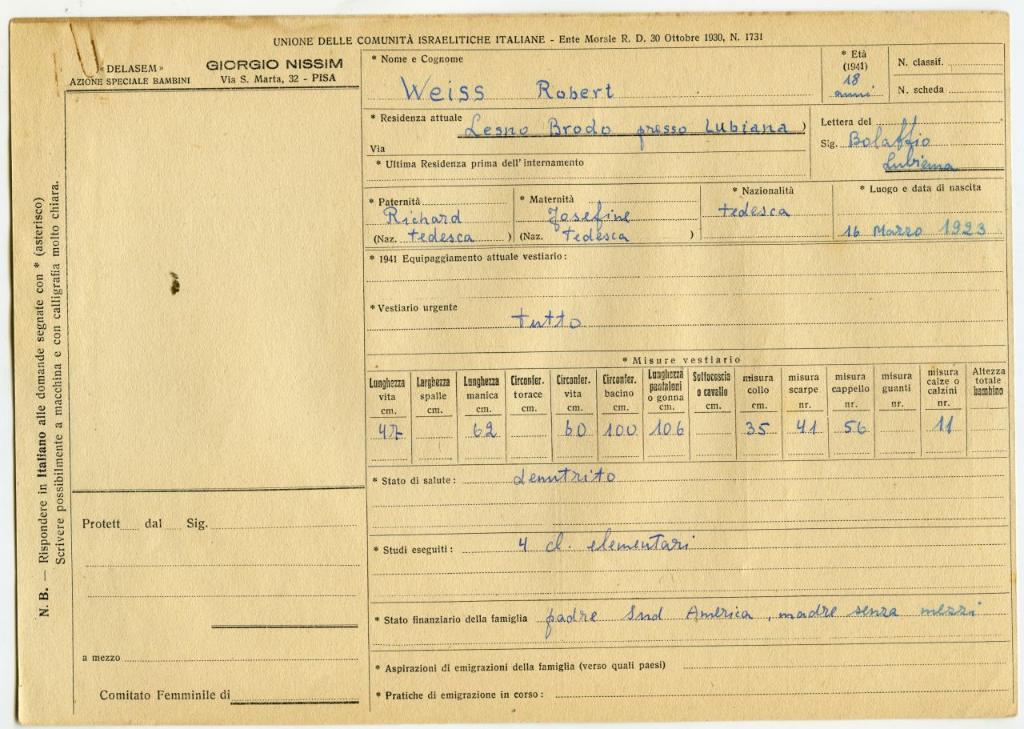 UNIONE DELLE COMUNITÀ ISRAELITICHE ITALIANE - Ente Morale R. D. 30 Ottobre 1930, N. 1731
«DELASEM»
AZIONE SPECIALE BAMBINI
GIORGIO NISSIM
Via S. Marta, 32 - PISA
N. B. — Rispondere in Italiano alle domande segnate con * (asterisco)
Scrivere possibilmente a macchina e con calligrafia molto chiara.
Protett dal Sig.
a mezzo
Comitato Femminile di
* Nome e Cognome
Weiss Robert
* Età
(1941)
18
anni
N. classif.
N. scheda
* Residenza attuale Lesno Brodo presso Lubiana )
Via
* Ultima Residenza prima dell'internamento
Lettera del
Sig. Bolaffio
Lubiana
* Paternità
Richard
(Naz. tedesca )
* Maternità
Josefine
(Naz. tedesca )
* Nazionalità
tedesca
* Luogo e data di nascita
16 Marzo 1923
* 1941 Equipaggiamento attuale vestiario:
* Vestiario urgente
tutto
* Misure vestiario
Lunghezza vita cm. 47
Larghezza spalle cm.
Lunghezza manica cm. 62
Circonfer. torace cm.
Circonfer. vita cm. 60
Circonfer. bacino cm. 100
Lunghezza pantaloni o gonna cm. 106
Sottocoscia o cavallo cm.
misura collo cm. 35
misura scarpe nr. 41
misura cappello nr. 56
misura guanti nr.
misura calze o calzini nr. 11
Altezza totale bambino
* Stato di salute: denutrito
* Studi eseguiti: 4 cl. elementari
* Stato finanziario della famiglia padre Sud America, madre senza mezzi
* Aspirazioni di emigrazioni della famiglia (verso quali paesi)
* Pratiche di emigrazione in corso: